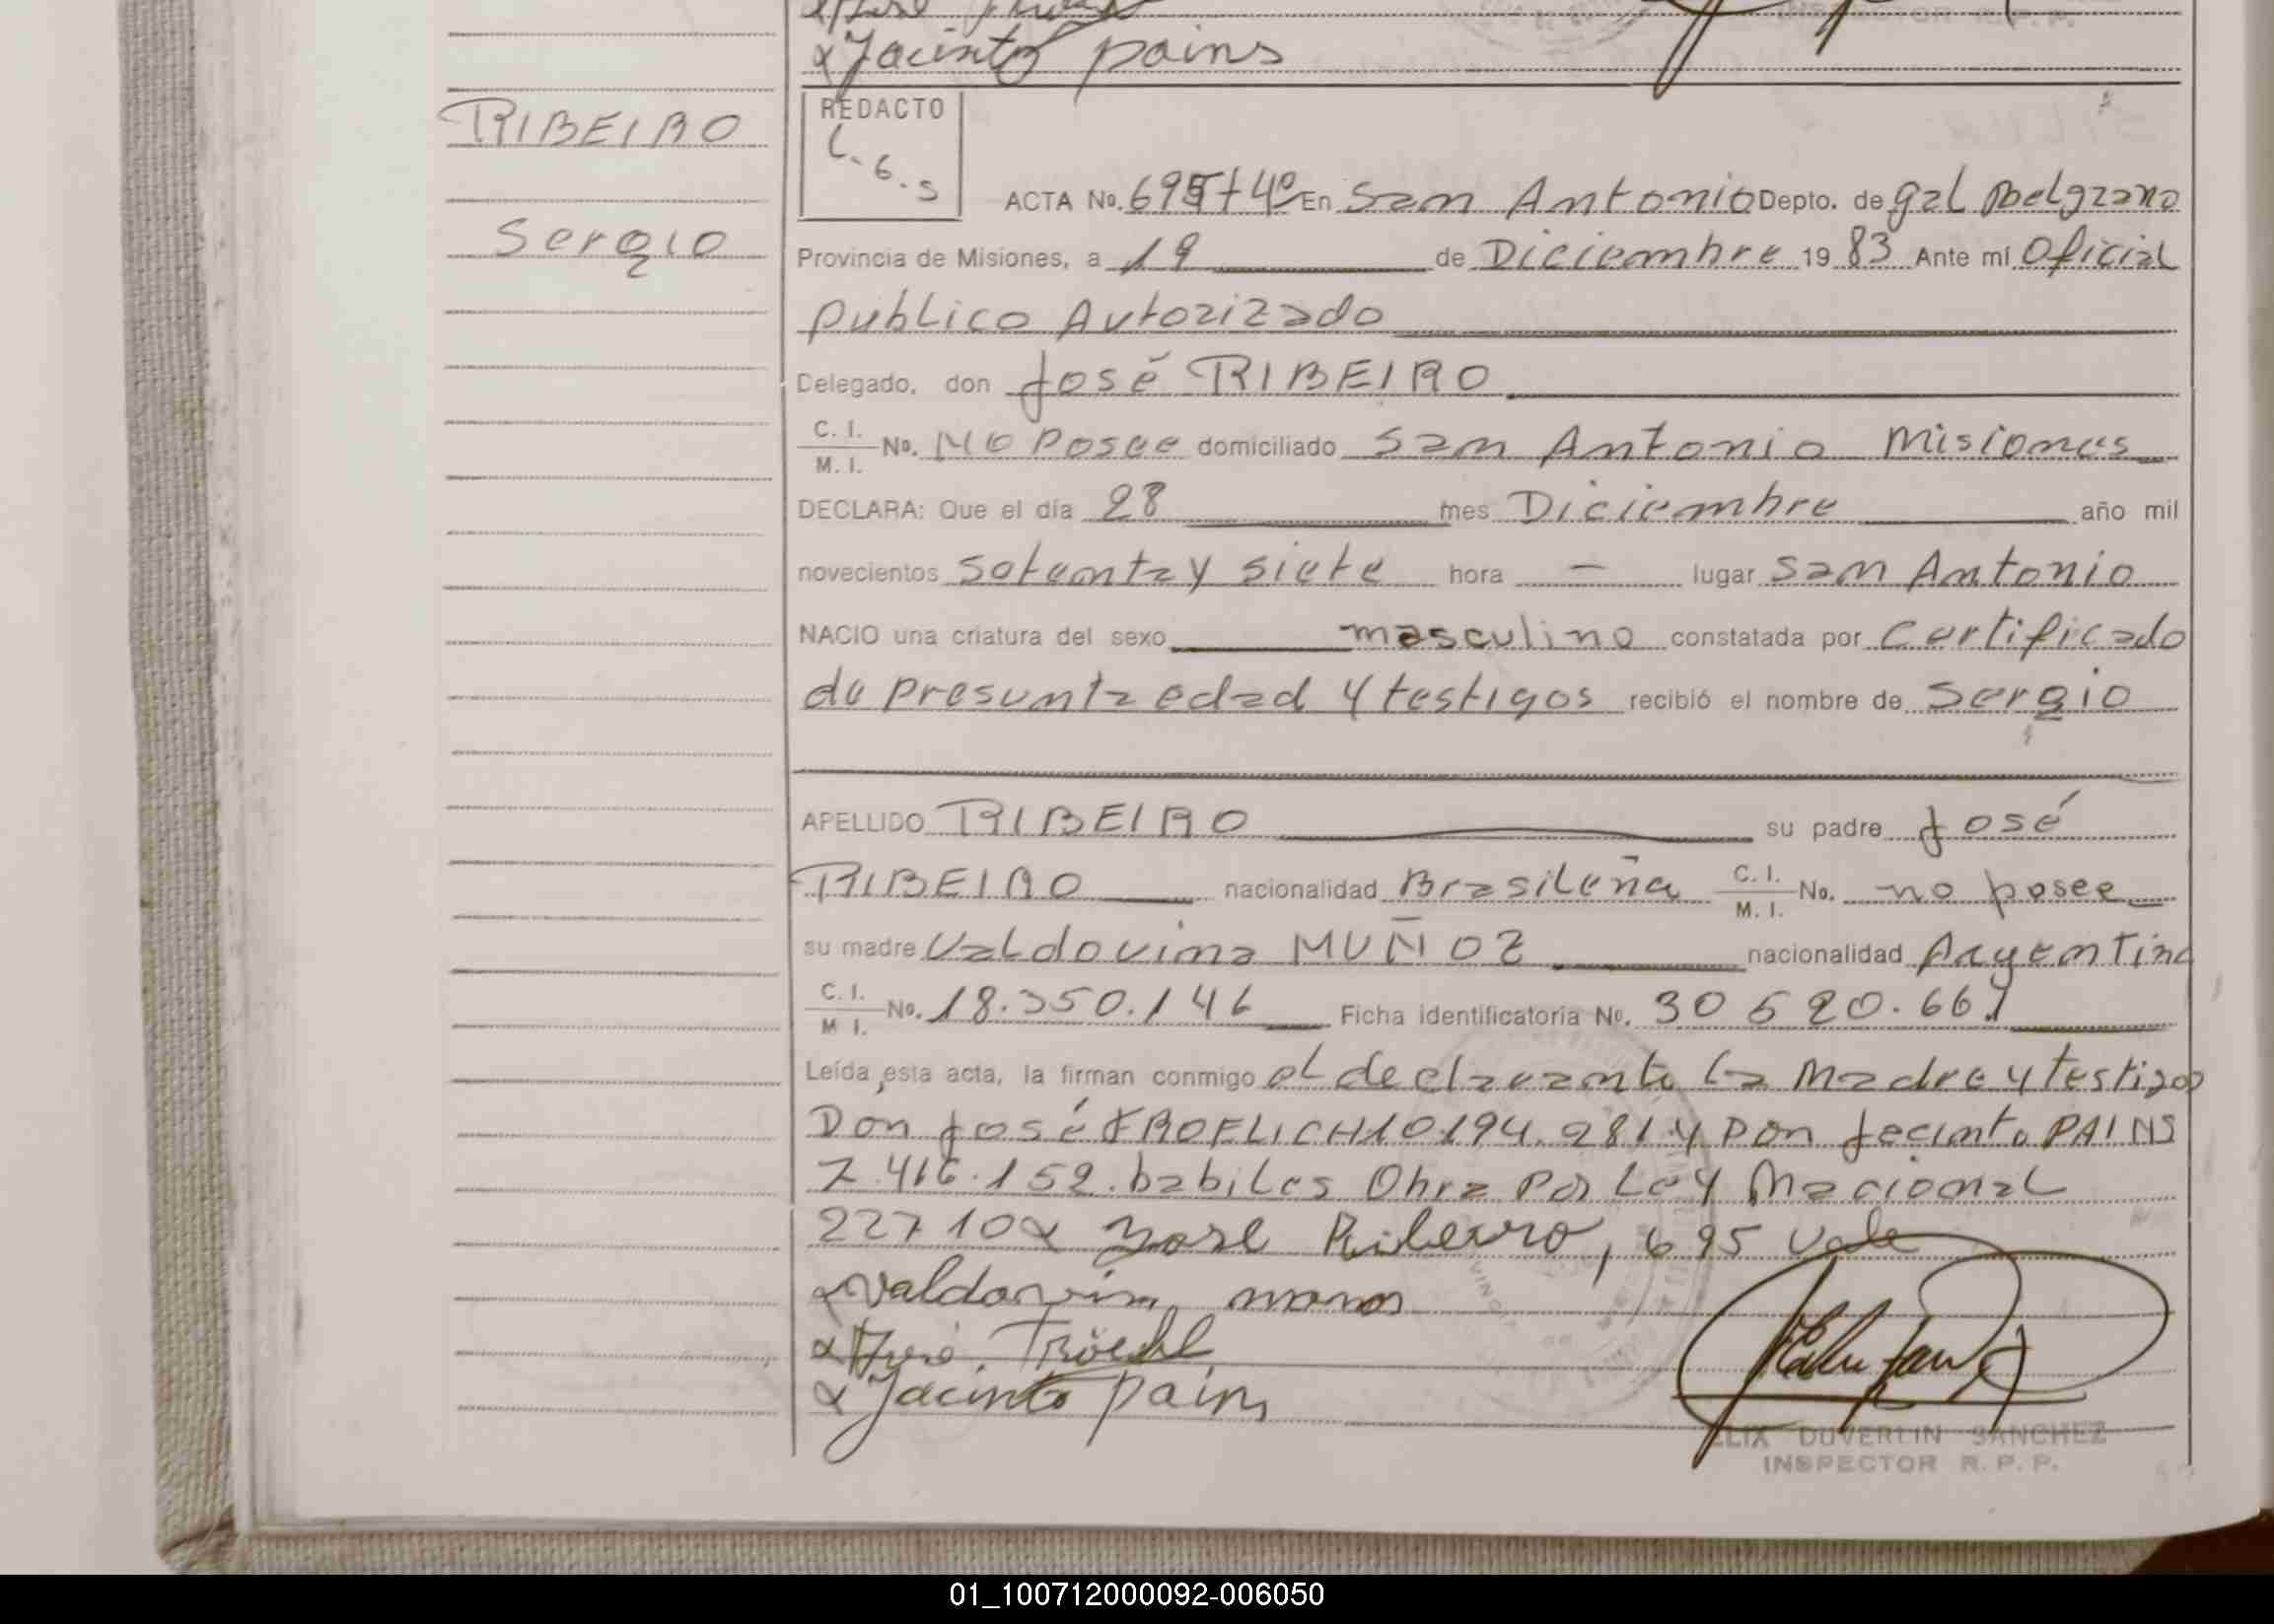 Jacinto pains
RIBEIRO
Sergio
REDACTO
L.G.S
ACTA No. 695 t 4º En San Antonio Depto. de gal Belgrano
Provincia de Misiones, a 19 de Diciembre 19 83 Ante mí Oficial
publico Autorizado
Delegado, don José RIBEIRO
C. I. / M. I. No. No Posee domiciliado San Antonio Misiones
DECLARA: Que el día 28 mes Diciembre año mil
novecientos setenta y siete hora — lugar San Antonio
NACIO una criatura del sexo masculino constatada por certificado
de presunta edad y testigos recibió el nombre de Sergio
APELLIDO RIBEIRO su padre José
RIBEIRO nacionalidad Brasileña C. I. / M. I. No. no posee
su madre Valdovina MUÑOZ nacionalidad Argentina
C. I. / M I. No. 18.350.146 Ficha identificatoria No. 30 520.661
Leída esta acta, la firman conmigo el declarante la Madre y testigos
Don José FROELICH 10194.281 y Don Jacinto PAINS
7.416.152. habiles Obra Por Ley Nacional
22710 x José Ribeiro, 695 vale
x Valdovin
x
x Jacinto Pains
ELIX DUVERLIN SANCHEZ
INSPECTOR R. P. P.
01_100712000092-006050